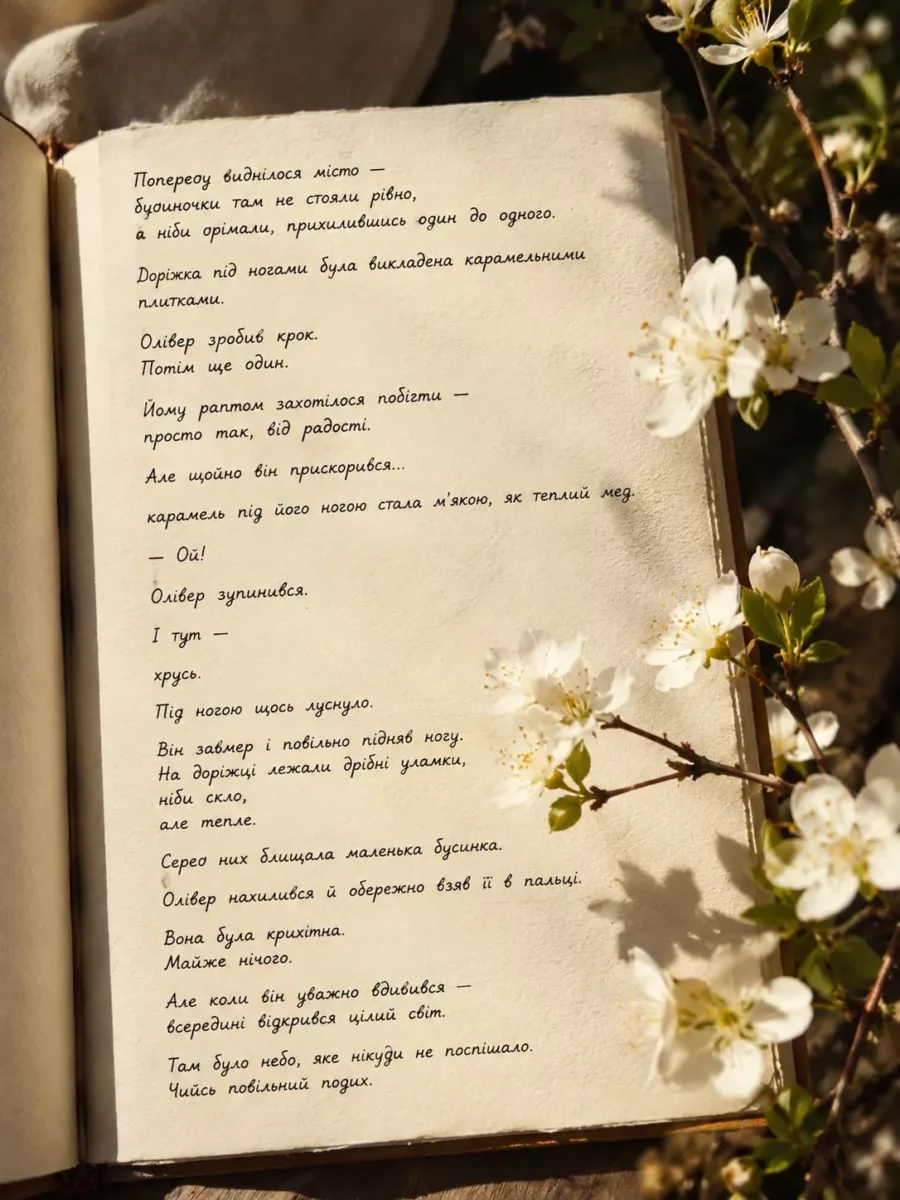 Попереду виднілося місто —
будиночки там не стояли рівно,
а ніби дрімали, прихилившись один до одного.
Доріжка під ногами була викладена карамельними
плитками.
Олівер зробив крок.
Потім ще один.
Йому раптом захотілося побігти —
просто так, від радості.
Але щойно він прискорився...
карамель під його ногою стала м'якою, як теплий мед.
— Ой!
Олівер зупинився.
І тут —
хрусь.
Під ногою щось луснуло.
Він завмер і повільно підняв ногу.
На доріжці лежали дрібні уламки,
ніби скло,
але тепле.
Серед них блищала маленька бусинка.
Олівер нахилився й обережно взяв її в пальці.
Вона була крихітна.
Майже нічого.
Але коли він уважно вдивився —
всередині відкрився цілий світ.
Там було небо, яке нікуди не поспішало.
Чийсь повільний подих.